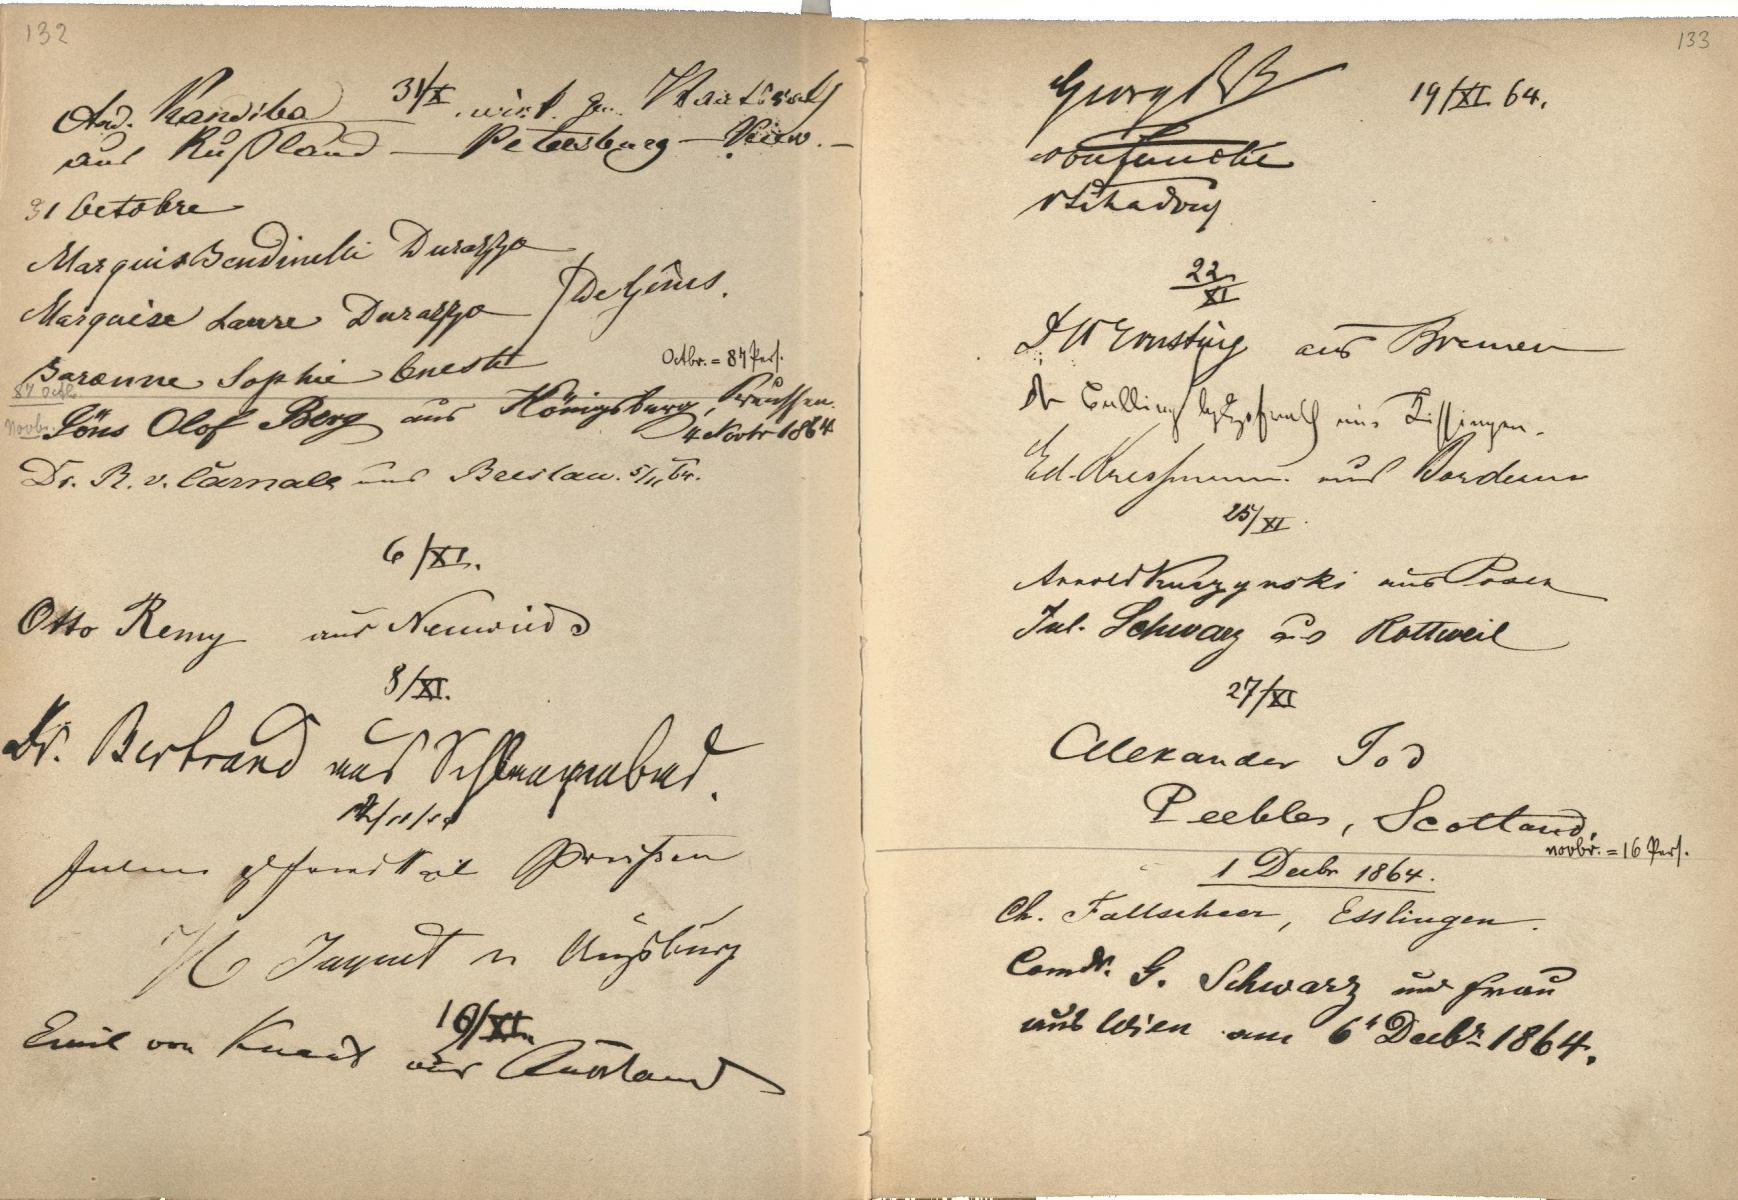 132
And. Kandiba 31/X wirkl. Staatsrath
aus Rußland — Petersburg — Kiew. —
31 Octobre
Marquis Bendinelli Durazzo
Marquise Laure Durazzo
De Gênes.
Baronne Sophie
Octbr. = 87 Pers.
87 Octb
Novbr.
Jöns Olof Berg aus Königsburg, Preussen.
4 Novbr 1864
Dr. R. v. Carnall aus Breslau. 5/11 64.
6/XI.
Otto Remy aus Neuwied
8/XI.
Dr. Bertrand aus Schlangenbad.
Preußen
Augsburg
19/XI
Emil von Knaut aus Russland
133
Georg 19/XI 64.
von Funcke
v Schadow
22/XI
Ernsting aus Bremen
Dr aus Kissingen.
Ed. Kressmann aus Bordeaux
25/XI.
Arnold Kuczynski aus Posen
Jul. Schwarz aus Rottweil
27/XI
Alexander Tod
Peebles, Scotland.
Novbr. = 16 Pers.
1 Decbr 1864.
Ch. Fallscheer, Esslingen.
Comdr. G. Schwarz und Frau
aus Wien am 6t Decbr 1864.